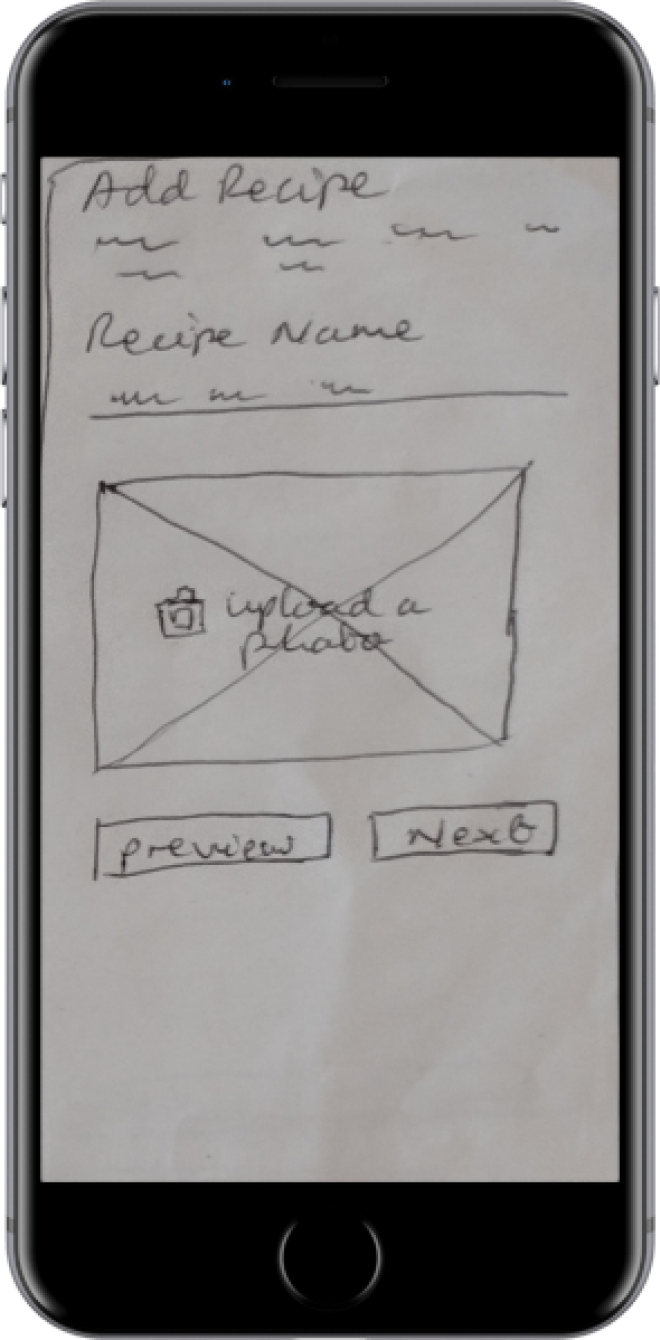 Add Recipe
Recipe Name
upload a
photo
preview
Next